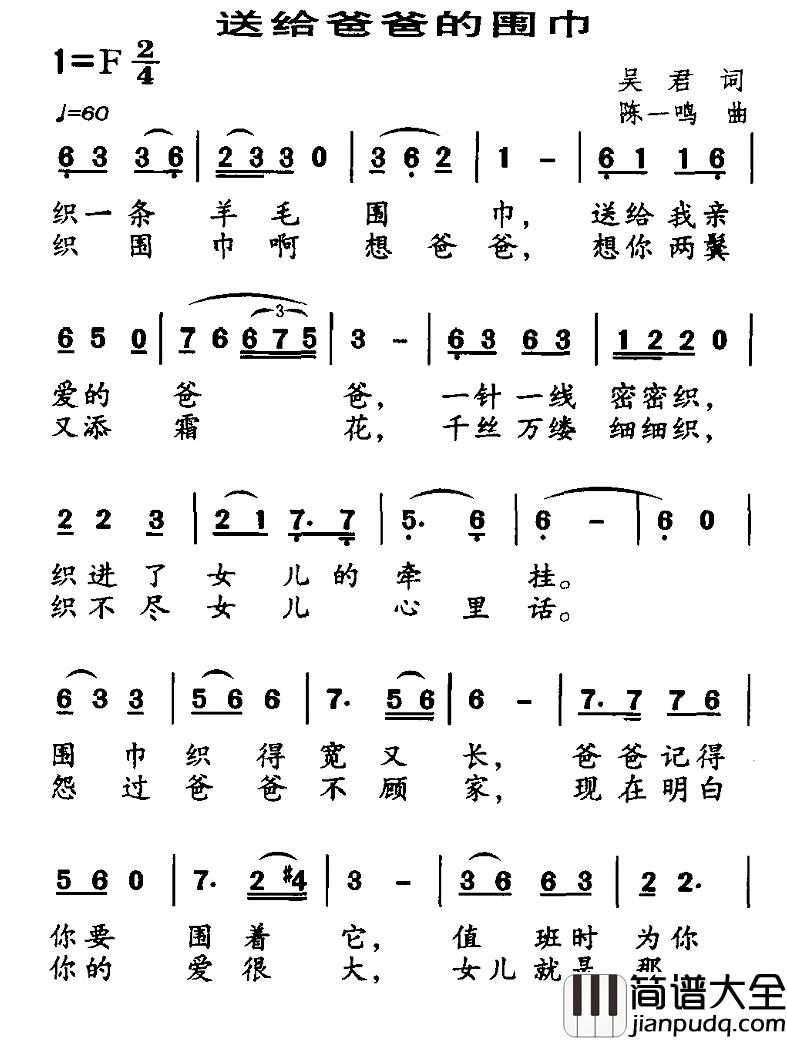 送给爸爸的围巾
1=F 2/4
吴君词
♩=60
陈一鸣 曲
6 3 3 6 | 2 3 3 0 | 3 6 2 | 1 - | 6 1 1 6 |
织一条羊毛围巾，送给我亲
织围巾啊想爸爸，想你两鬓
6 5 0 | 7 6 6 7 5 | 3 - | 6 3 6 3 | 1 2 2 0 |
爱的爸爸，一针一线密密织，
又添霜花，千丝万缕细细织，
2 2 3 | 2 1 7. 7 | 5. 6 | 6 - | 6 0 |
织进了女儿的牵挂。
织不尽女儿心里话。
6 3 3 | 5 6 6 | 7. 5 6 | 6 - | 7. 7 7 6 |
围巾织得宽又长，爸爸记得
怨过爸爸不顾家，现在明白
5 6 0 | 7. 2 #4 | 3 - | 3 6 6 3 | 2 2. |
你要围着它，值班时为你
你的爱很大，女儿就是那
简谱大全
jianpudq.com